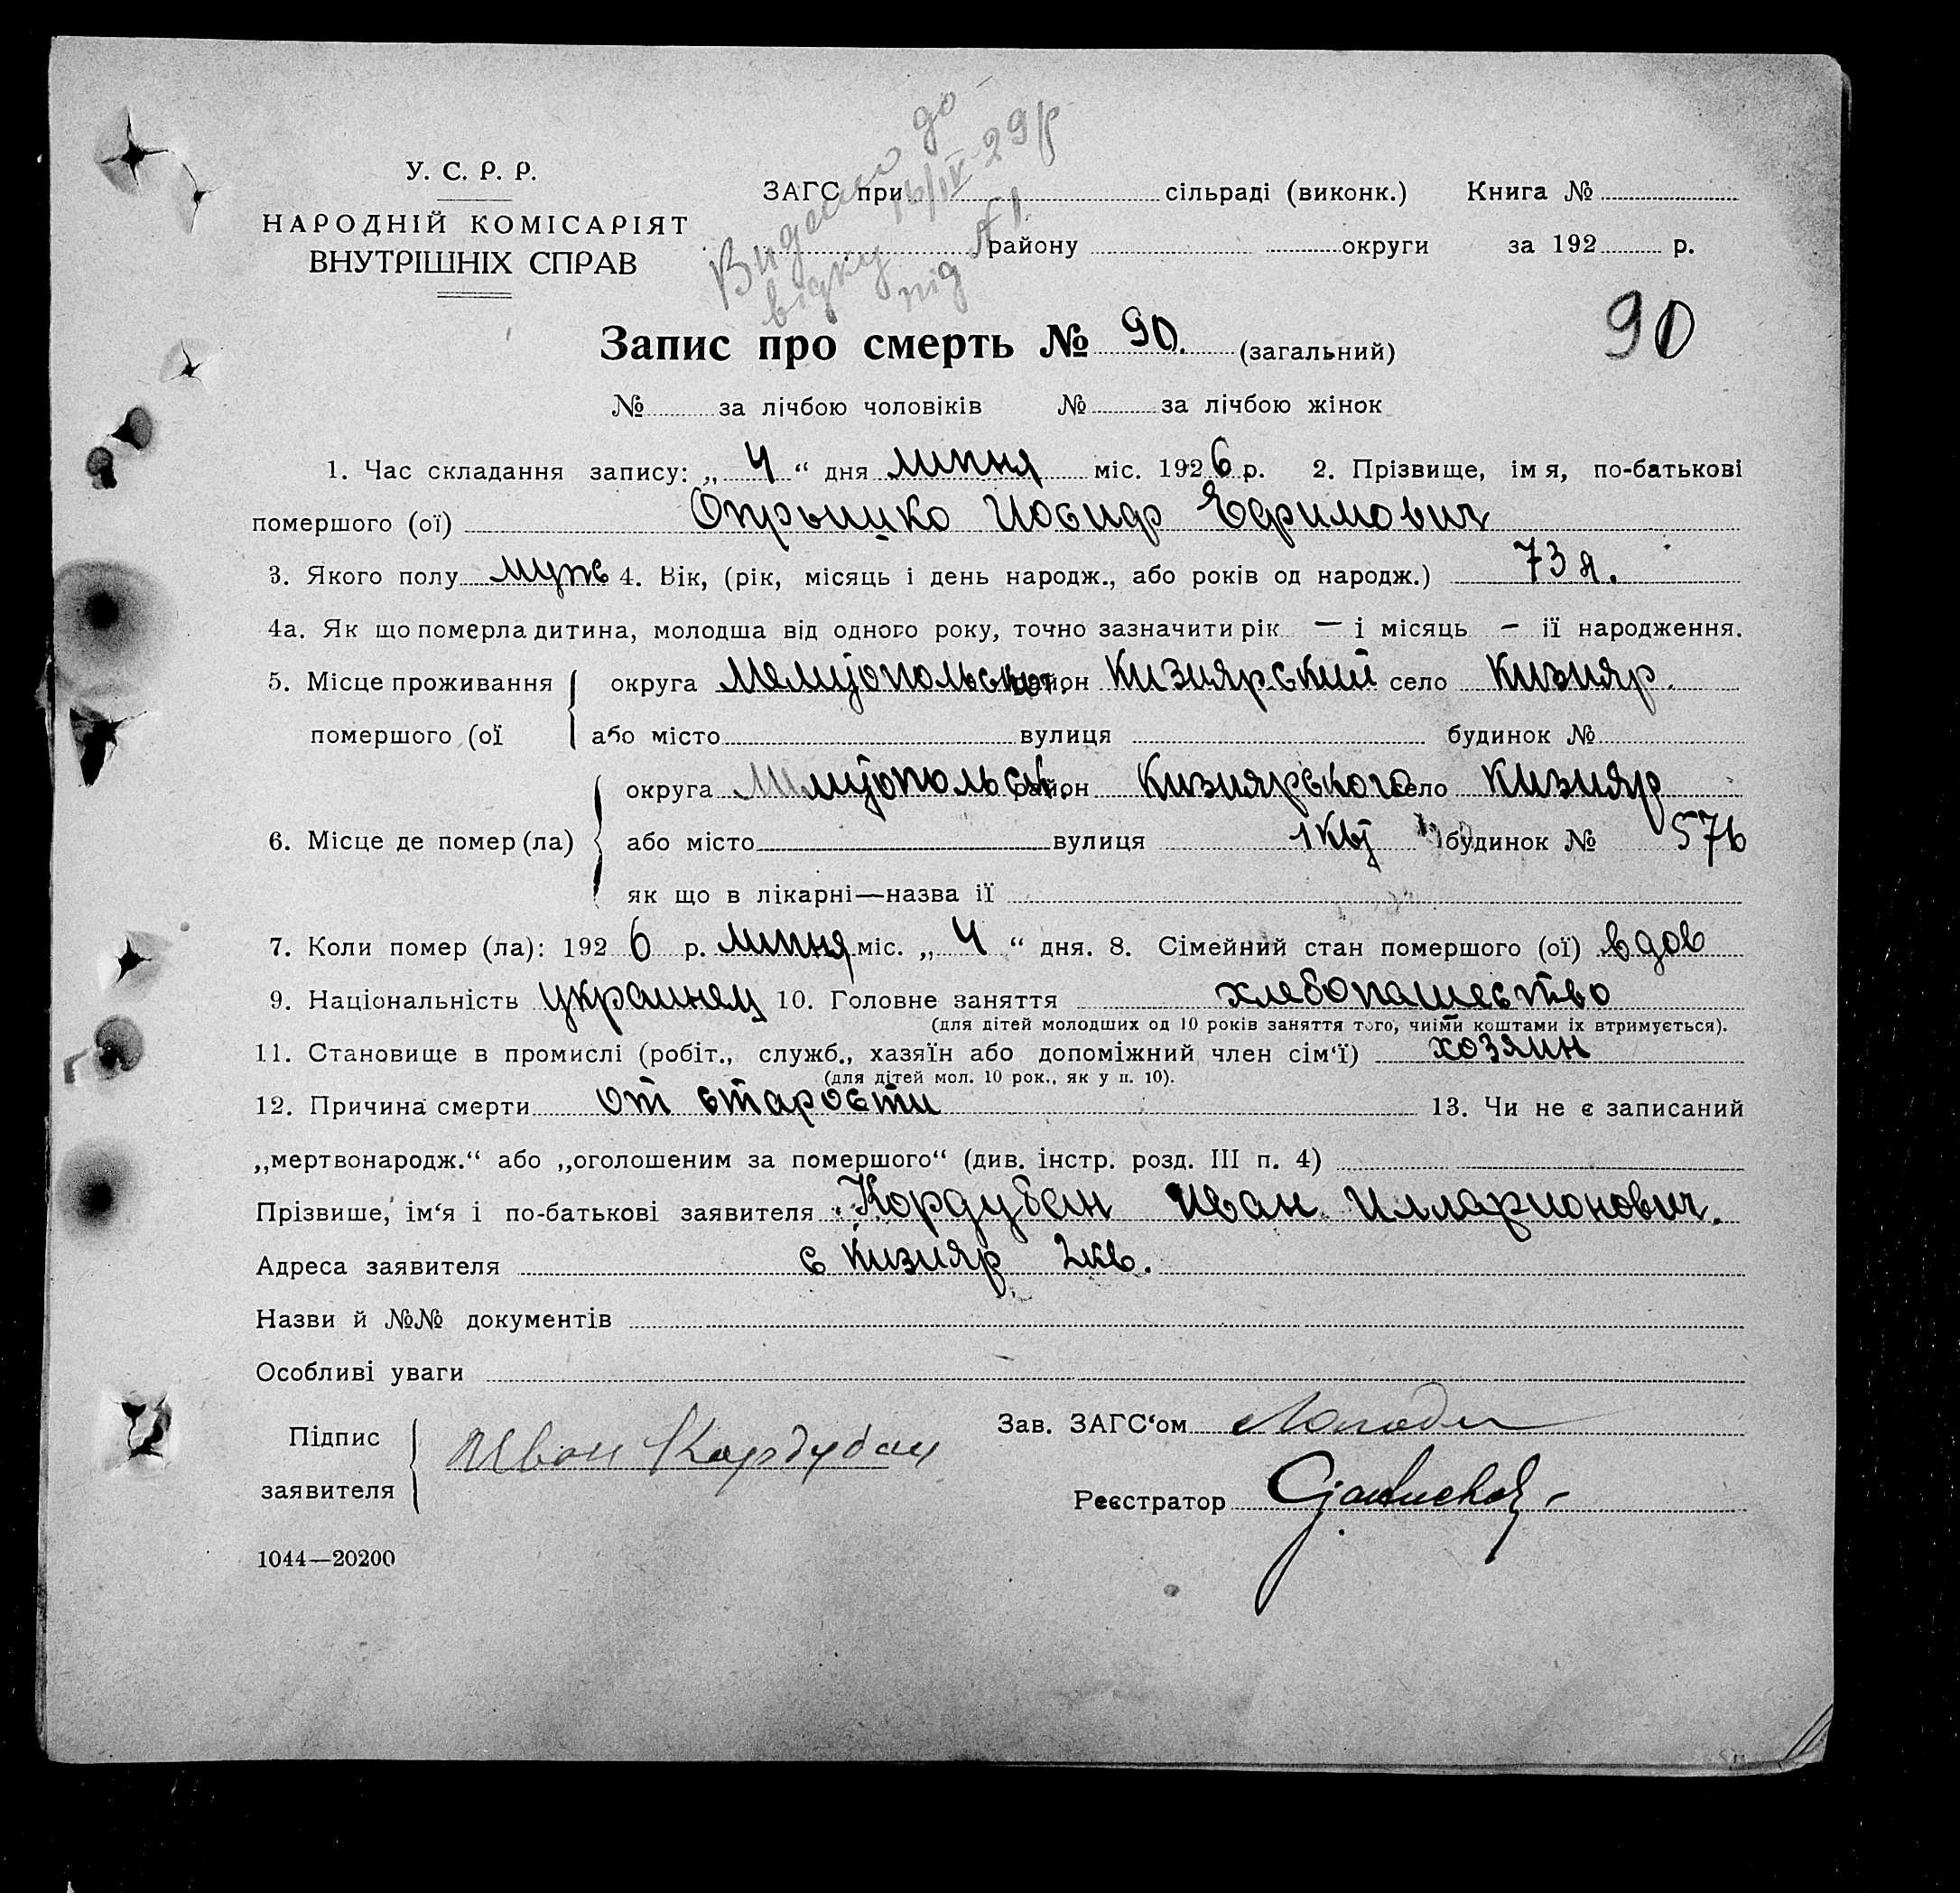 Видано до-
відку 16/IV-29р
під № 1
У. С. Р. Р.
НАРОДНІЙ КОМІСАРІЯТ
ВНУТРІШНІХ СПРАВ
ЗАГС при сільраді (виконк.) Книга №
району округи за 192 р.
90
Запис про смерть № 90. (загальний)
№ за лічбою чоловіків № за лічбою жінок
1. Час складання запису: „ 4 “ дня липня міс. 1926 р. 2. Прізвище, імя, по-батькові
помершого (ої) Опрышко Иосиф Ефимович
3. Якого полу муж 4. Вік, (рік, місяць і день народж., або років од народж.) 73 л.
4а. Як що померла дитина, молодша від одного року, точно зазначити рік — і місяць – її народження.
5. Місце проживання округа Мелитопольськ. район Кизиярский село Кизияр.
помершого (ої або місто вулиця будинок №
округа Мелитопольськ. район Кизиярського село Кизияр
6. Місце де помер (ла) або місто вулиця 1 кв будинок № 576
як що в лікарні—назва її
7. Коли помер (ла): 1926 р. липня міс. „ 4 “ дня. 8. Сімейний стан помершого (ої) вдов
9. Національність украинец 10. Головне заняття хлебопашество
(для дітей молодших од 10 років заняття того, чиїми коштами їх втримується).
11. Становище в промислі (робіт., служб., хазяїн або допоміжний член сім‘ї) хозяин
(для дітей мол. 10 рок., як у п. 10).
12. Причина смерти от старости 13. Чи не є записаний
„мертвонародж.“ або „оголошеним за помершого“ (див. інстр. розд. III п. 4)
Прізвише, ім‘я і по-батькові заявителя Кордубан Иван Илларионович.
Адреса заявителя с Кизияр 2кв.
Назви й №№ документів
Особливі уваги
Підпис Иван Кордубан Зав. ЗАГС‘ом
заявителя Реєстратор
1044—20200